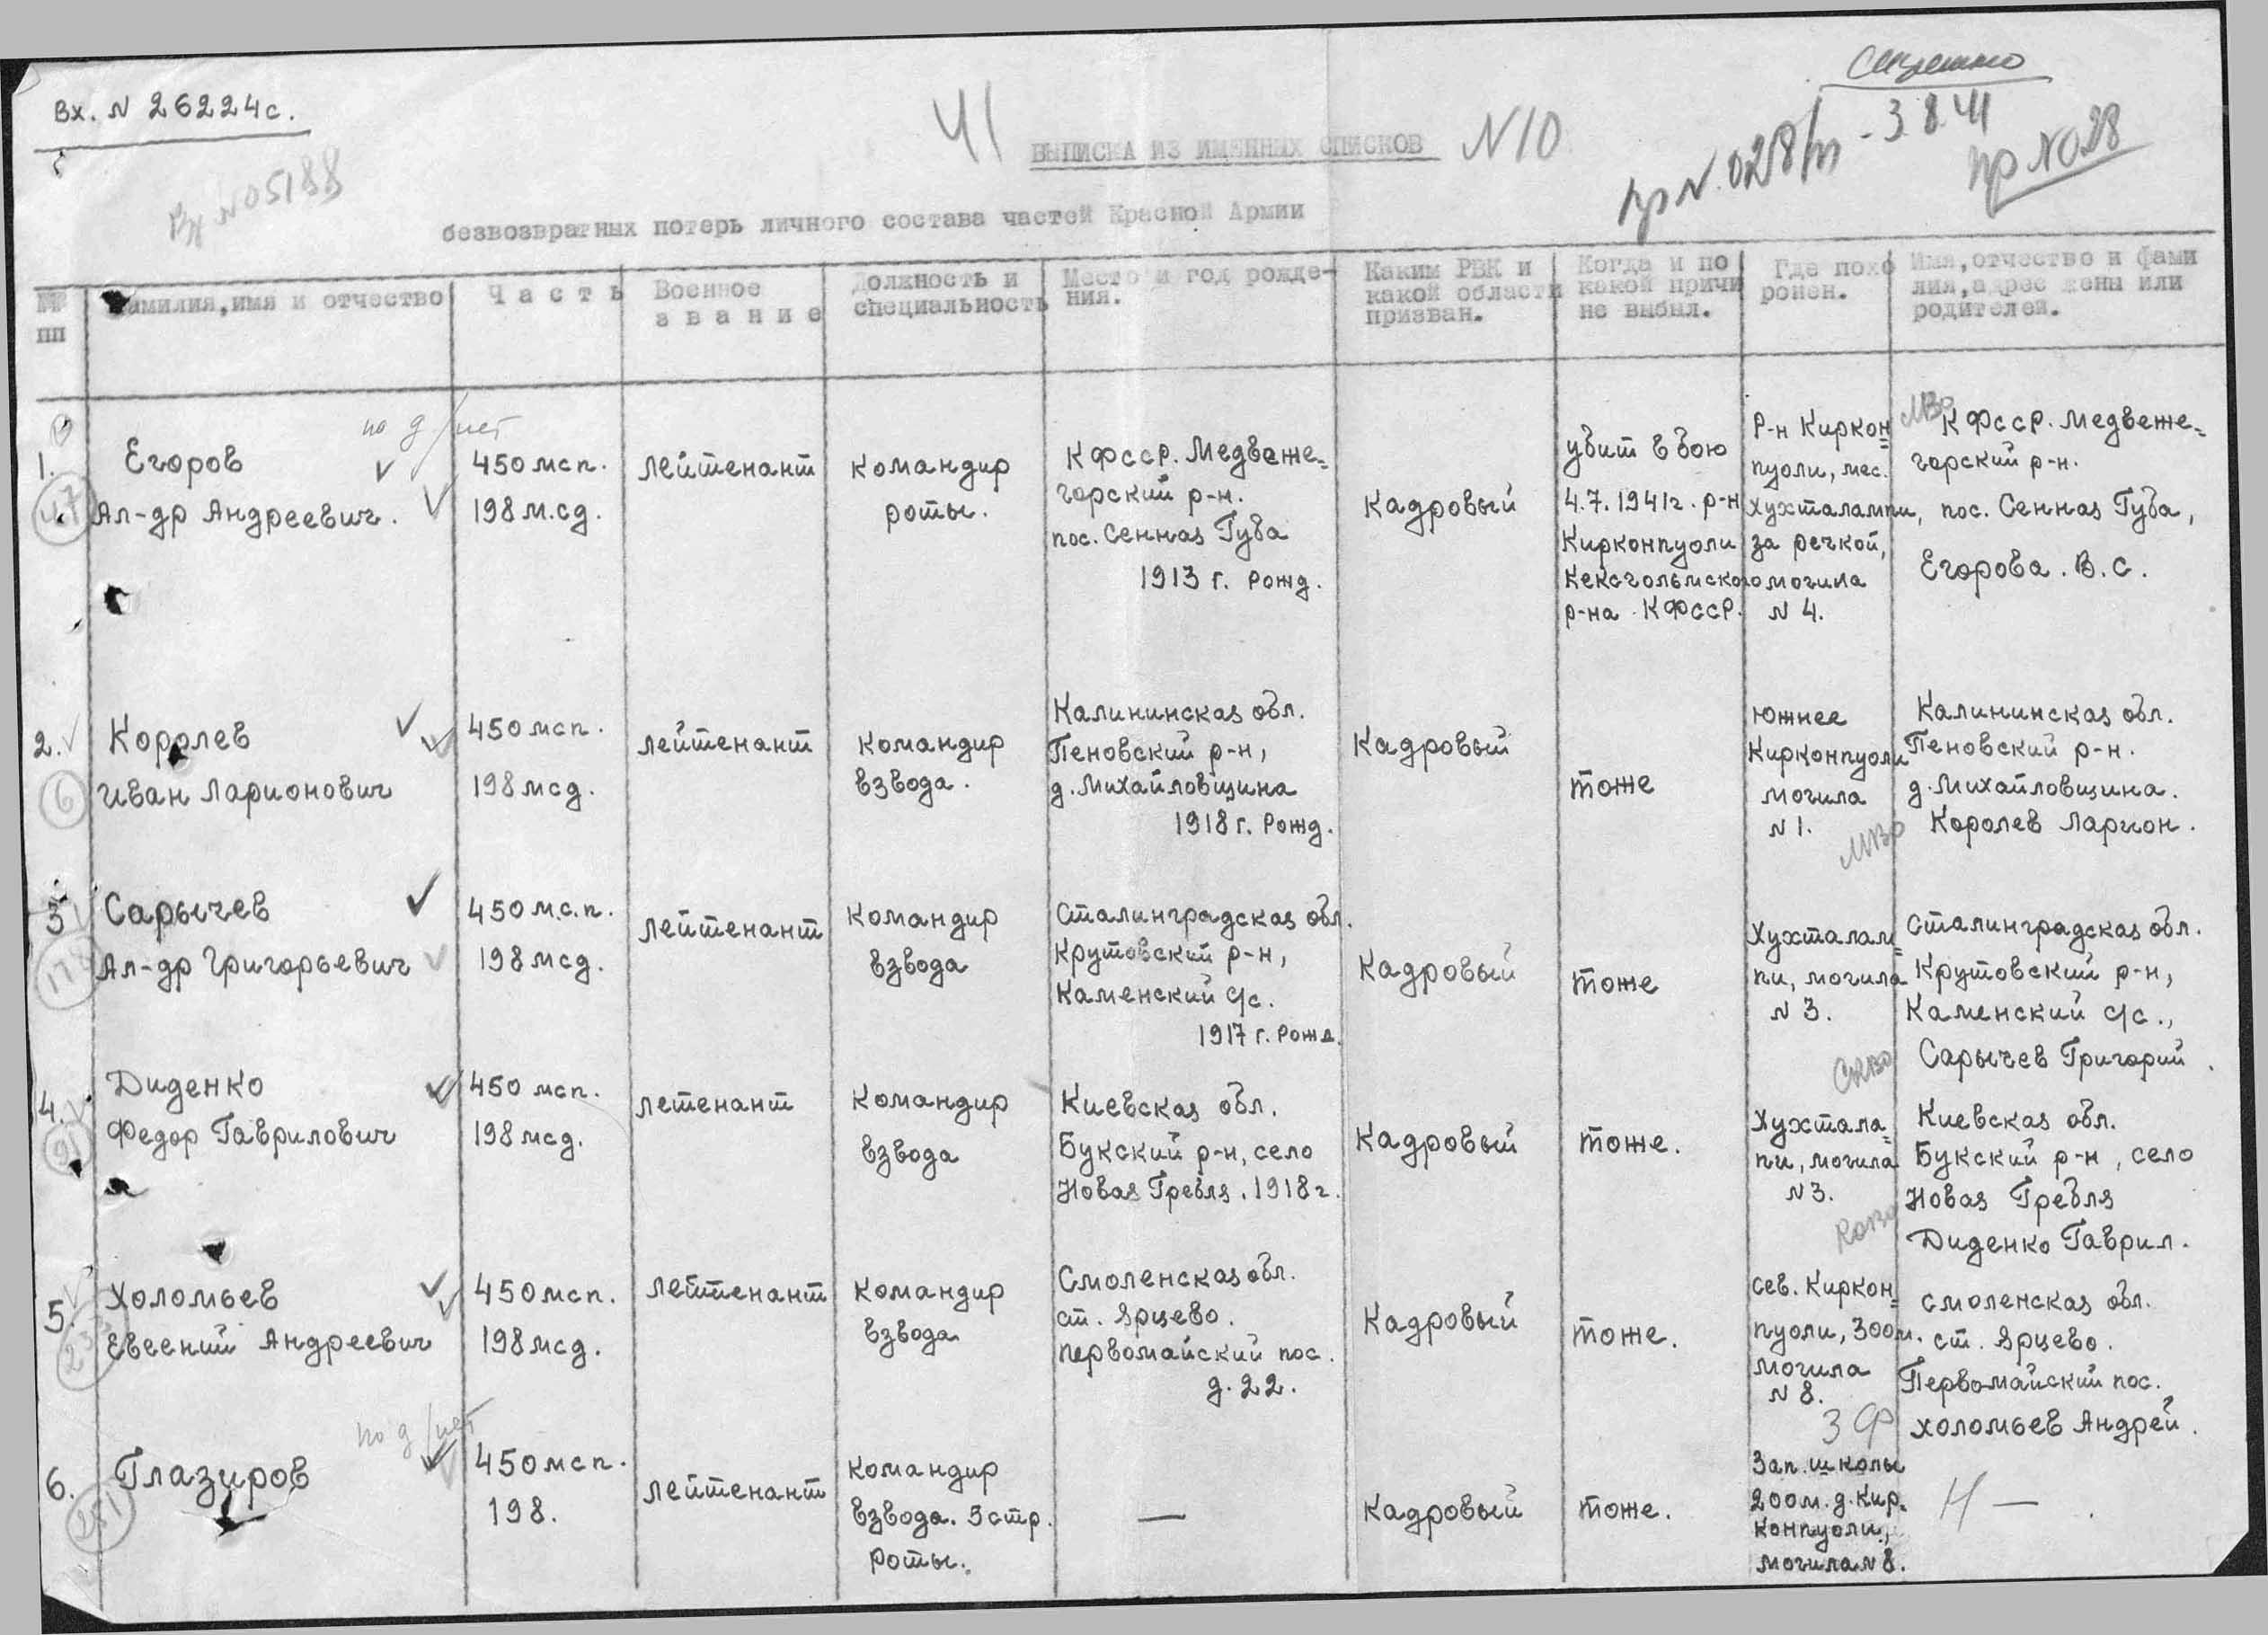 Секретно
Вх. N 26224с.
41
ВЫПИСКА ИЗ ИМЕННЫХ СПИСКОВ N10
пр N.028/ - 3.8.41
пр N028
Вх N05188
безвозвратных потерь личного состава частей Красной Армии
№№ пп
Фамилия,имя и отчество
Часть
Военное
звание
Должность и
специальность
Место и год рожде-
ния.
Каким РВК и
какой области
призван.
Когда и по
какой причи
не выбыл.
Где похо
ронен.
Имя,отчество и фами
лия,адрес жены или
родителей.
1.
47
Егоров
Ал-др Андреевич.
по д/нет
450 мсп.
198 м.сд.
Лейтенант
Командир
роты.
КФССР. Медвеже=
горский р-н.
пос. Сенная Губа
1913 г. рожд.
Кадровый
убит в бою
4.7.1941г. р-н
Кирконпуоли
Кексгольмского
р-на КФССР.
Р-н Киркон=
пуоли, мес.
Хухталампи,
за речкой,
могила
N 4.
ЛВО
КФССР. Медвеже=
горский р-н.
пос. Сенная Губа,
Егорова. В.С.
2.
6
Королев
Иван Ларионович
450 мсп.
198 мсд.
Лейтенант
Командир
взвода.
Калининская обл.
Пеновский р-н,
д. Михайловщина
1918 г. Рожд.
Кадровый
тоже
Южнее
Кирконпуоли
могила
N 1.
МВО
Калининская обл.
Пеновский р-н.
д. Михайловщина.
Королев Ларион.
3
178
Сарычев
Ал-др Григорьевич
450 м.с.п.
198 мсд.
Лейтенант
Командир
взвода
Сталинградская обл.
Крутовский р-н,
Каменский с/с.
1917 г. Рожд.
Кадровый
тоже
Хухталам=
пи, могила
N 3.
СКВО
Сталинградская обл.
Крутовский р-н,
Каменский с/с.,
Сарычев Григорий.
4.
91
Диденко
Федор Гаврилович
450 мсп.
198 мсд.
летенант
Командир
взвода
Киевская обл.
Букский р-н, село
Новая Гребля. 1918 г.
Кадровый
тоже.
Хухтала=
пи, могила
N 3.
КОВО
Киевская обл.
Букский р-н, село
Новая Гребля
Диденко Гаврил.
5.
Холомьев
Евгений Андреевич
450 мсп.
198 мсд.
Лейтенант
Командир
взвода
Смоленская обл.
ст. Ярцево.
первомайский пос.
д. 22.
Кадровый
тоже.
Сев. Киркон=
пуоли, 300м.
могила
N 8.
ЗФ
Смоленская обл.
ст. Ярцево.
Первомайский пос.
Холомьев Андрей.
6.
251
Глазиров
по д/нет
450 мсп.
198.
Лейтенант
Командир
взвода. 3 стр.
роты.
—
Кадровый
тоже.
Зап. школы
200м. д. Кир=
конпуоли,
могила N 8.
Н —